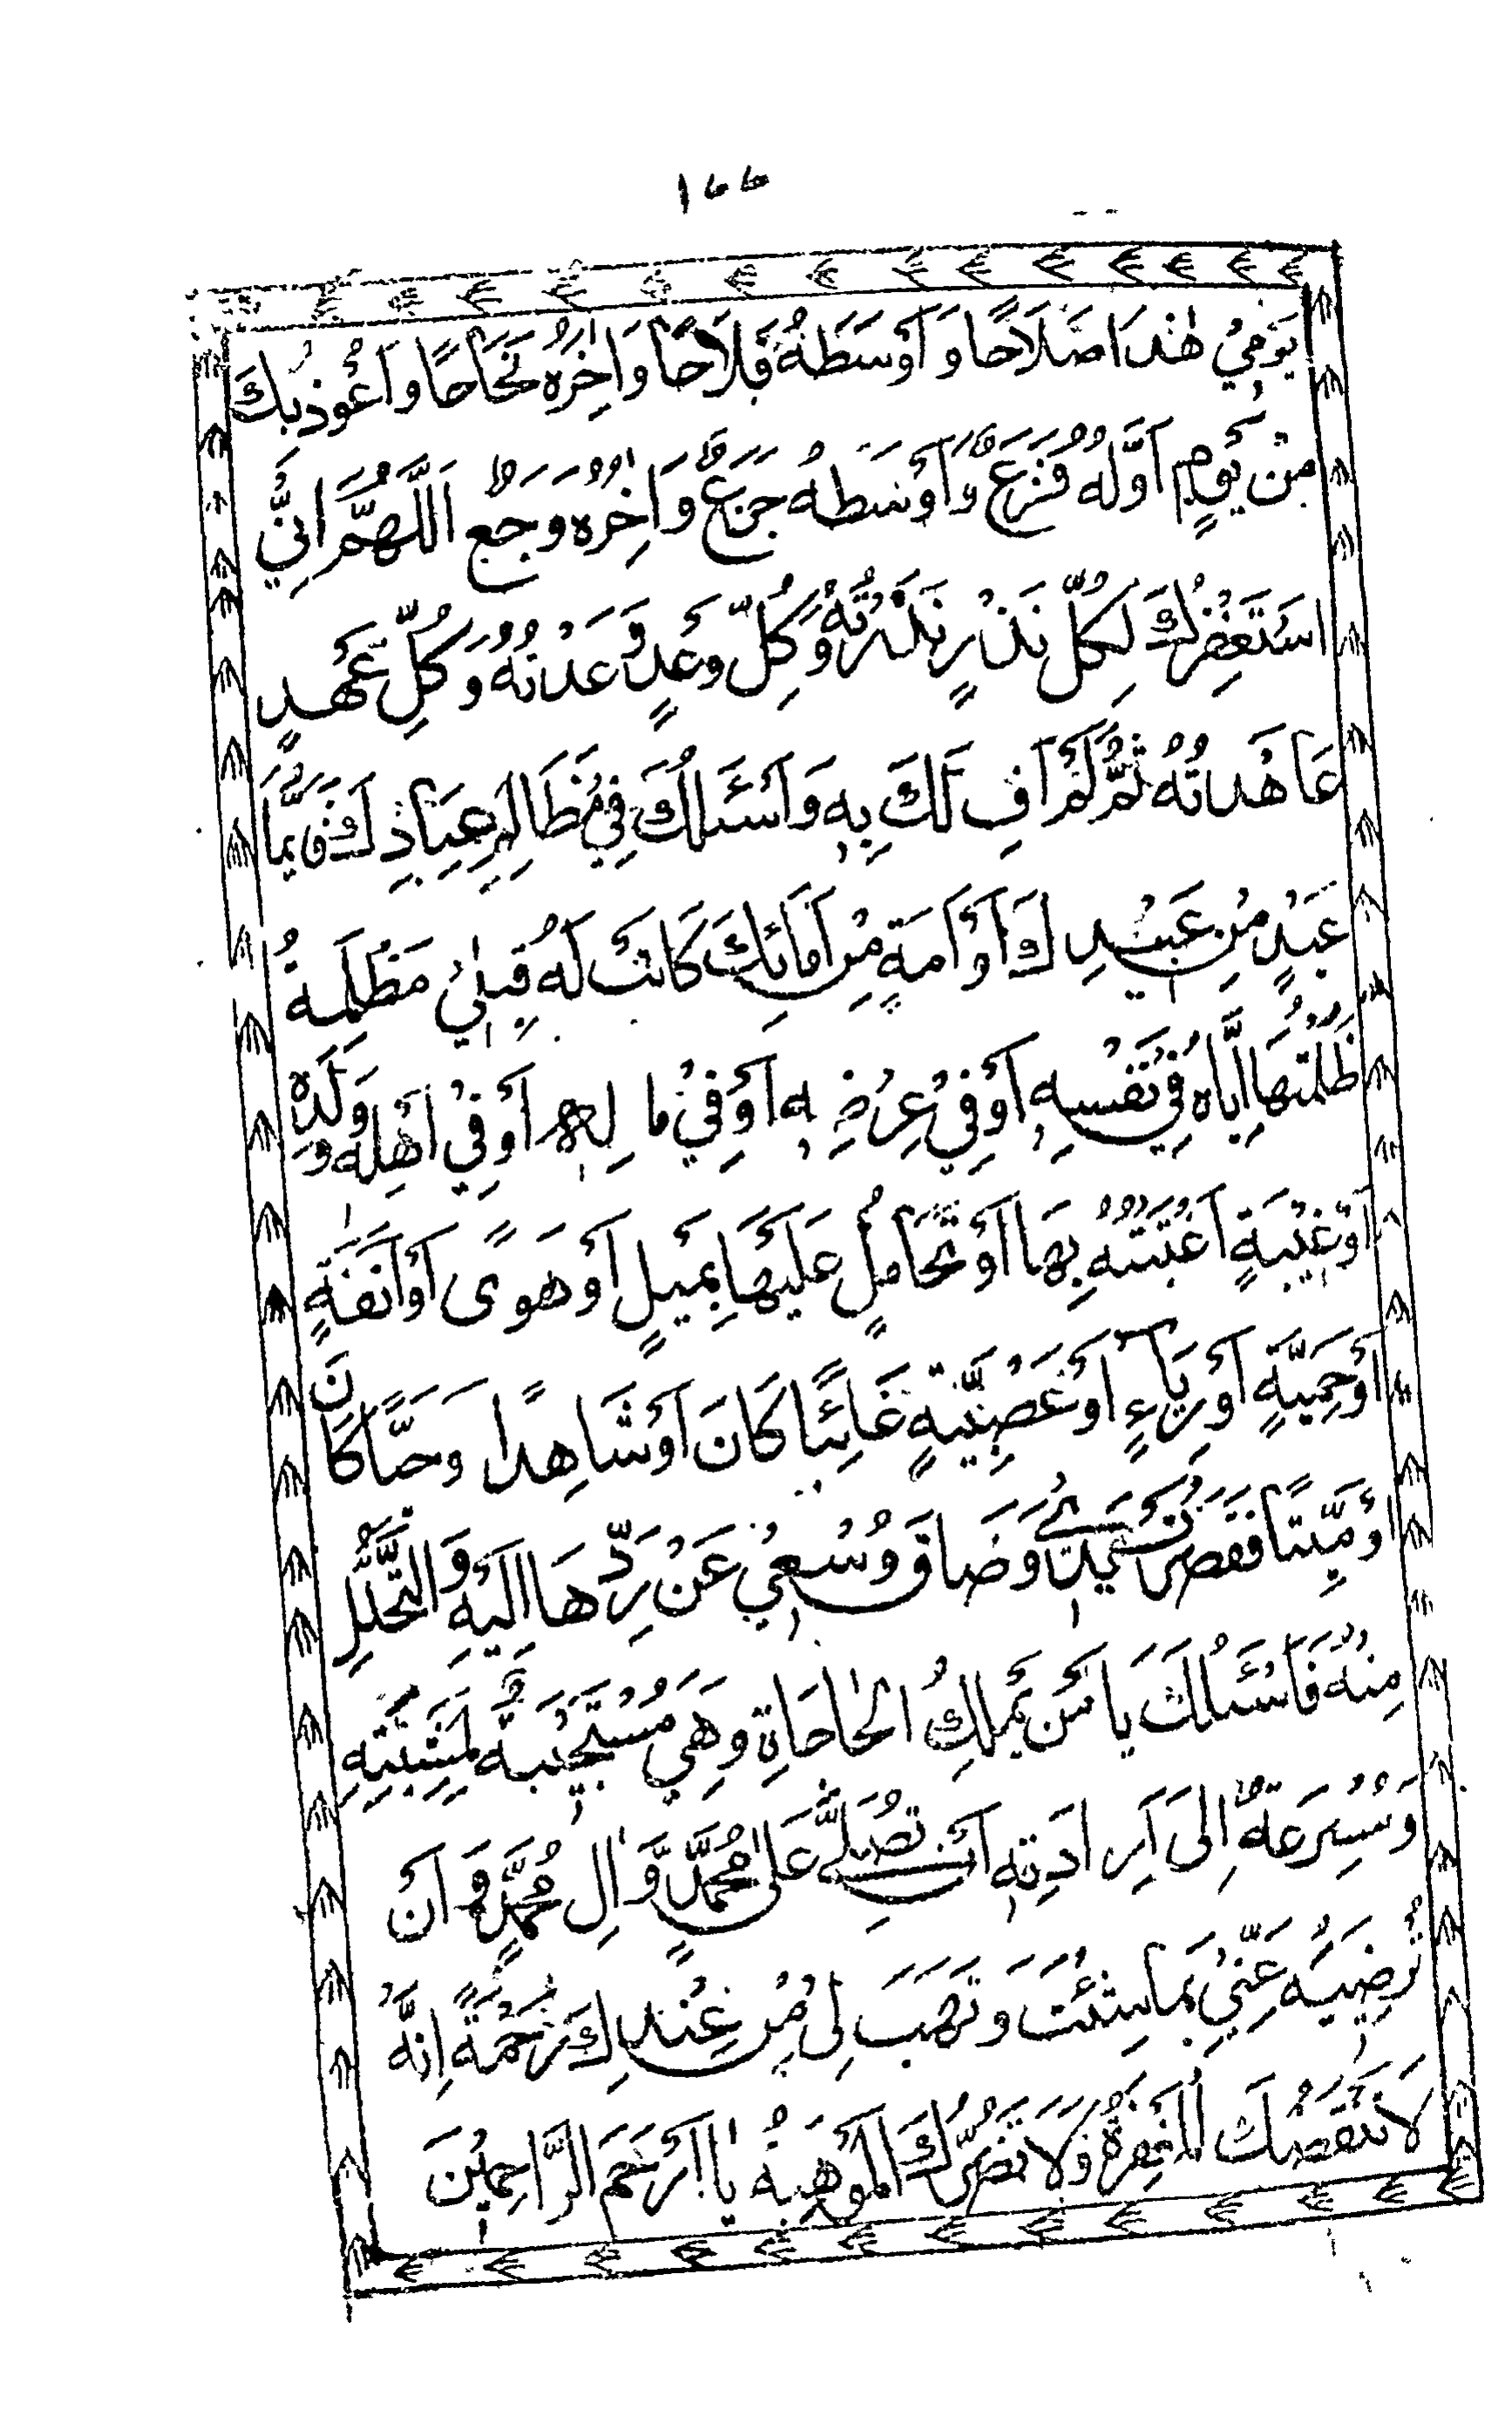 ١٦٦
يَوْمِيْ هٰذَا صَلَاحًا وَاَوْسَطَهٗ فَلَاحًا وَاٰخِرُهٗ نَجَاحًا وَاَعُوْذُ بِكَ
مِنْ يَوْمٍ اَوَّلُهٗ فَزَعٌ وَاَوْسَطُهٗ جَزَعٌ وَاٰخِرُهٗ وَجَعٌ اَللّٰهُمَّ اِنِّيْ
اَسْتَغْفِرُكَ لِكُلِّ نَذْرٍ نَذَرْتُهٗ وَكُلِّ وَعْدٍ وَعَدْتُهٗ وَكُلِّ عَهْدٍ
عَاهَدْتُهٗ ثُمَّ لَمْ اَفِ لَكَ بِهٖ وَاَسْئَلُكَ فِيْ مَظَالِمِ عِبَادِكَ فَاَيُّمَا
عَبْدٍ مِنْ عَبِيْدِكَ اَوْ اَمَةٍ مِنْ اِمَائِكَ كَانَتْ لَهٗ قِبَلِيْ مَظْلِمَةٌ
ظَلَمْتُهَا اِيَّاهُ فِيْ نَفْسِهٖ اَوْ فِيْ عِرْضِهٖ اَوْ فِيْ مَالِهٖ اَوْ فِيْ اَهْلِهٖ وَوَلَدِهٖ
اَوْ غِيْبَةٍ اغْتَبْتُهٗ بِهَا اَوْ تَحَامُلٍ عَلَيْهَا بِمَيْلٍ اَوْ هَوًى اَوْ اَنَفَةٍ
اَوْ حَمِيَّةٍ اَوْ رِيَاءٍ اَوْ عَصَبِيَّةٍ غَائِبًا كَانَ اَوْ شَاهِدًا وَحَيًّا كَانَ
اَوْ مَيِّتًا فَقَصُرَتْ يَدِيْ وَضَاقَ وُسْعِيْ عَنْ رَدِّهَا اِلَيْهِ وَالتَّحَلُّلِ
مِنْهُ فَاَسْئَلُكَ يَا مَنْ يَمْلِكُ الْحَاجَاتِ وَهِيَ مُسْتَجِيْبَةٌ لِمَشِيَّتِهٖ
وَمُسْرِعَةٌ اِلٰى اِرَادَتِهٖ اَنْ تُصَلِّيَ عَلٰى مُحَمَّدٍ وَّاٰلِ مُحَمَّدٍ وَاَنْ
تُرْضِيَهٗ عَنِّيْ بِمَا شِئْتَ وَتَهَبَ لِيْ مِنْ عِنْدِكَ رَحْمَةً اِنَّهٗ
لَا تَنْقُصُكَ الْمَغْفِرَةُ وَلَا تَضُرُّكَ الْمَوْهِبَةُ يَا اَرْحَمَ الرَّاحِمِيْنَ